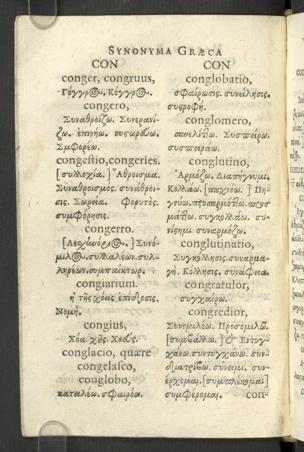 SYNONYMA GRÆCA
CON
conger, congruus,
Γόγγρος. Κόγγρος.
congero,
Συναθροίζω. Συνερανί-
ζω. συσωρεύω.
Συμφορέω.
congestio, congeries.
[συλλοχία.] Ἄθροισμα.
Συναθροισμός. συνάθροι-
σις. Σωρεία. Φορυτός.
συμφόρησις.
congerro.
Συνό-
μιλος. συλλαλέων. συλ-
ληρέων. συμπαίκτωρ.
congiarium.
ἡ τῆς χοὸς ἐπίδοσις.
Νομή.
congius,
Χόα. χῦς. Χοεύς.
conglacio, quære
congelasco,
conglobo,
σφαιρόω.
CON
conglobatio,
σφαίρωσις. συνείλησις.
συστροφή.
conglomero,
συνειλέω. Συσπείρω.
συσπειράω.
conglutino,
Ἁρμόζω. Διαπήγνυμι.
Κολλάω. Πη-
γνύω. προσαρμόττω. προσ-
μάττω. συγκολλάω. συ-
συναρμόζω.
conglutinatio,
Συγκόλλησις. συναρμο-
γή. Κόλλησις. συνάφεια.
congratulor,
συγχαίρω.
congredior,
Συνομιλέω. Προσομιλῶ.
[συμβάλλω.] & Ἐντυγ-
χάνω. συντυγχάνω. συν-
διατρίβω. σύνειμι. συν-
έρχομαι. [συμπλέκομαι]
συμφέρομαι.
con-